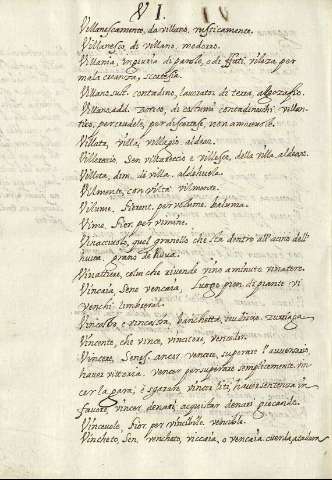 VI.
Villanescamente, da villano, rusticamente.
Villanesco, di villano, modorro.
Villania, ingiuria di parole, e di fatti, vileza, por
mala crianza, scortesia.
Villano, sust. contadino, lavorator di terra,
Villano, add. zotico, di costumi contadineschi, villan-
tico, per crudele, per discortese, non amorevole.
Villata, villa, villagio, aldeas.
Villereccio, Sen. villareccio e villesco, della villa, aldeano.
Villetta, dim. di villa, aldehuela.
Vilmente, con viltà, vilmente.
Vilume, Fiorent. per volume, balume.
Vime, Fior. per vimine.
Vinacciuolo, quel granello che sta dentro all'acino dell'
huva, grano de huva.
Vinattiere, colui che rivende vino a minuto, vinatero.
Vincaia, Seno vencaia, Luogo pien di piante di
venchi,
Vincastro, e vincastra, bacchetta,
Vincente, che vince, vincitore, vencedor.
Vincere, Senes. ancor vencere, superare l'avversario,
haver vittoria, vencer per superare semplicemente, vin-
cer la gara, è sgarare, vincer liti, haver sentenza in
favore, vincer denari, acquistar denari giocando.
Vincevole, Fior. per vincibile, vencible.
Vincheto, Sen. vencheto, viccaia, o vencaia,